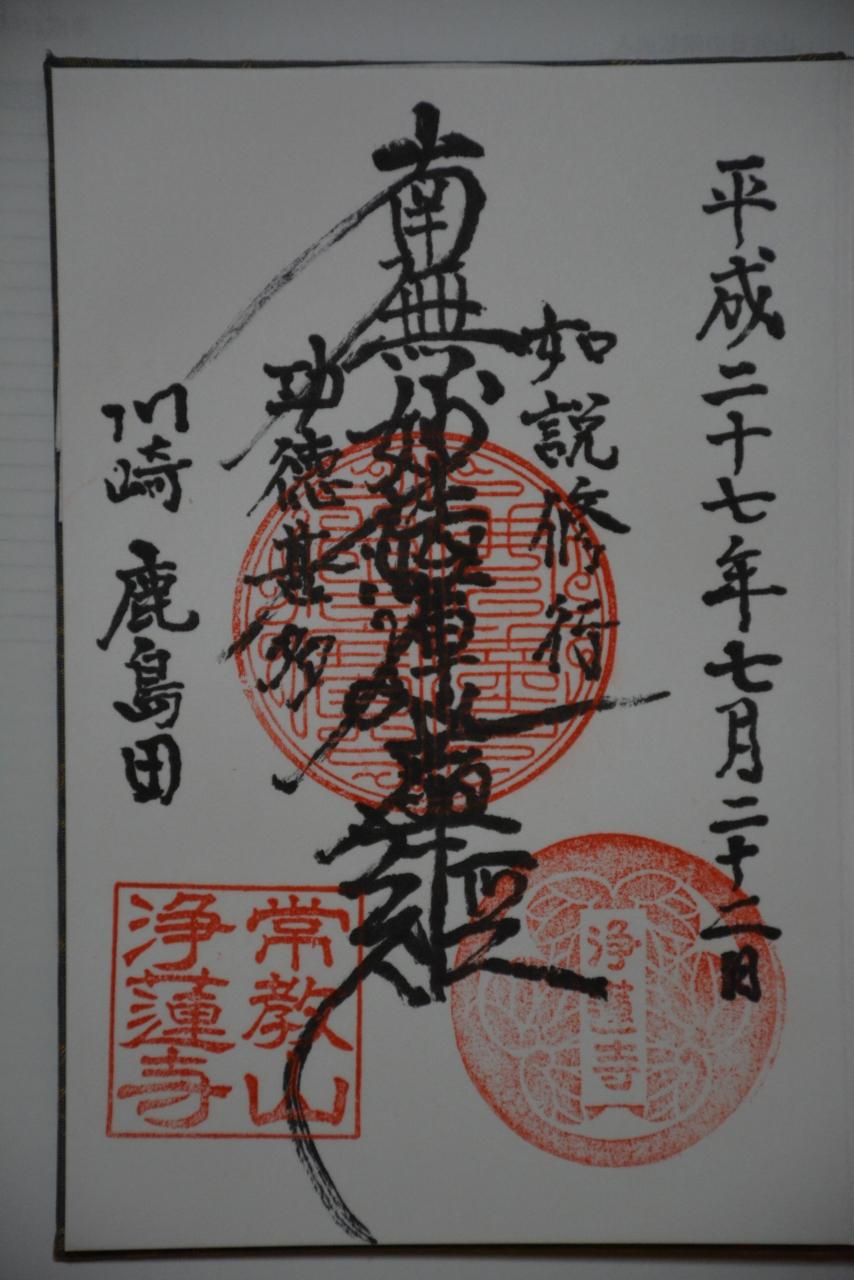 平成二十七年七月二十二日
如説修行
南無妙法蓮華経
功徳甚多
川崎 鹿島田
常教山
浄蓮寺
浄蓮寺